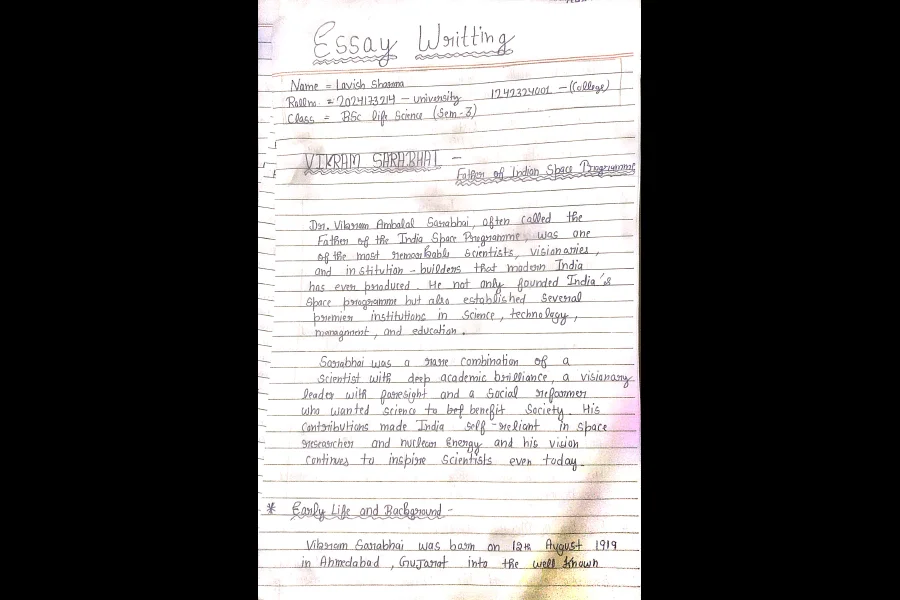 Essay Writting
Name = Lavish Sharma
Rollno. = 2024173214 - university 1242324001 - (College)
Class = BSc life Science (Sem-3)
VIKRAM SARABHAI -
Father of Indian Space Programme
Dr. Vikram Ambalal Sarabhai, often called the
Father of the India Space Programme, was one
of the most remarkable scientists, visionaries,
and institution - builders that modern India
has ever produced. He not only founded India's
space programme but also established several
premier institutions in science, technology,
managment, and education.
Sarabhai was a rare combination of a
scientist with deep academic brilliance, a visionary
leader with foresight and a social reformer
who wanted science to bef benefit society. His
contributions made India self-reliant in space
researcher and nuclear Energy and his vision
continues to inspire scientists even today.
* Early Life and Background -
Vikram Sarabhai was born on 12th August 1919
in Ahmedabad, Gujarat into the well known